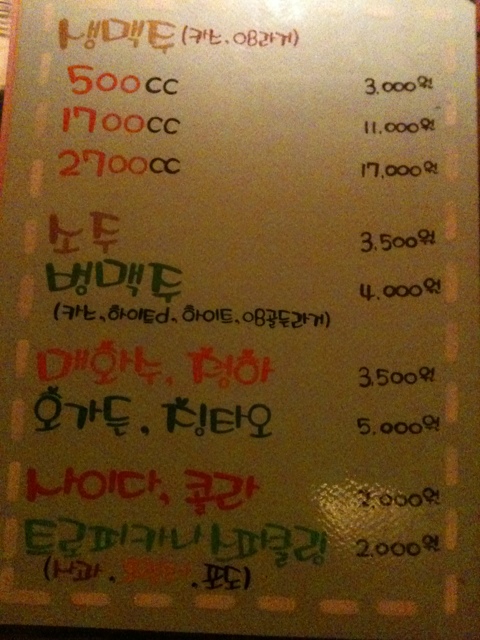 생맥주 (카스, OB라거)
500cc 3,000원
1700cc 11,000원
2700cc 17,000원
소주 3,500원
병맥주 4,000원
(카스, 하이트d, 하이트, OB골든라거)
매화수, 청하 3,500원
호가든, 칭타오 5,000원
사이다, 콜라 2,000원
트로피카나 스파클링 2,000원
(사과, 포도)